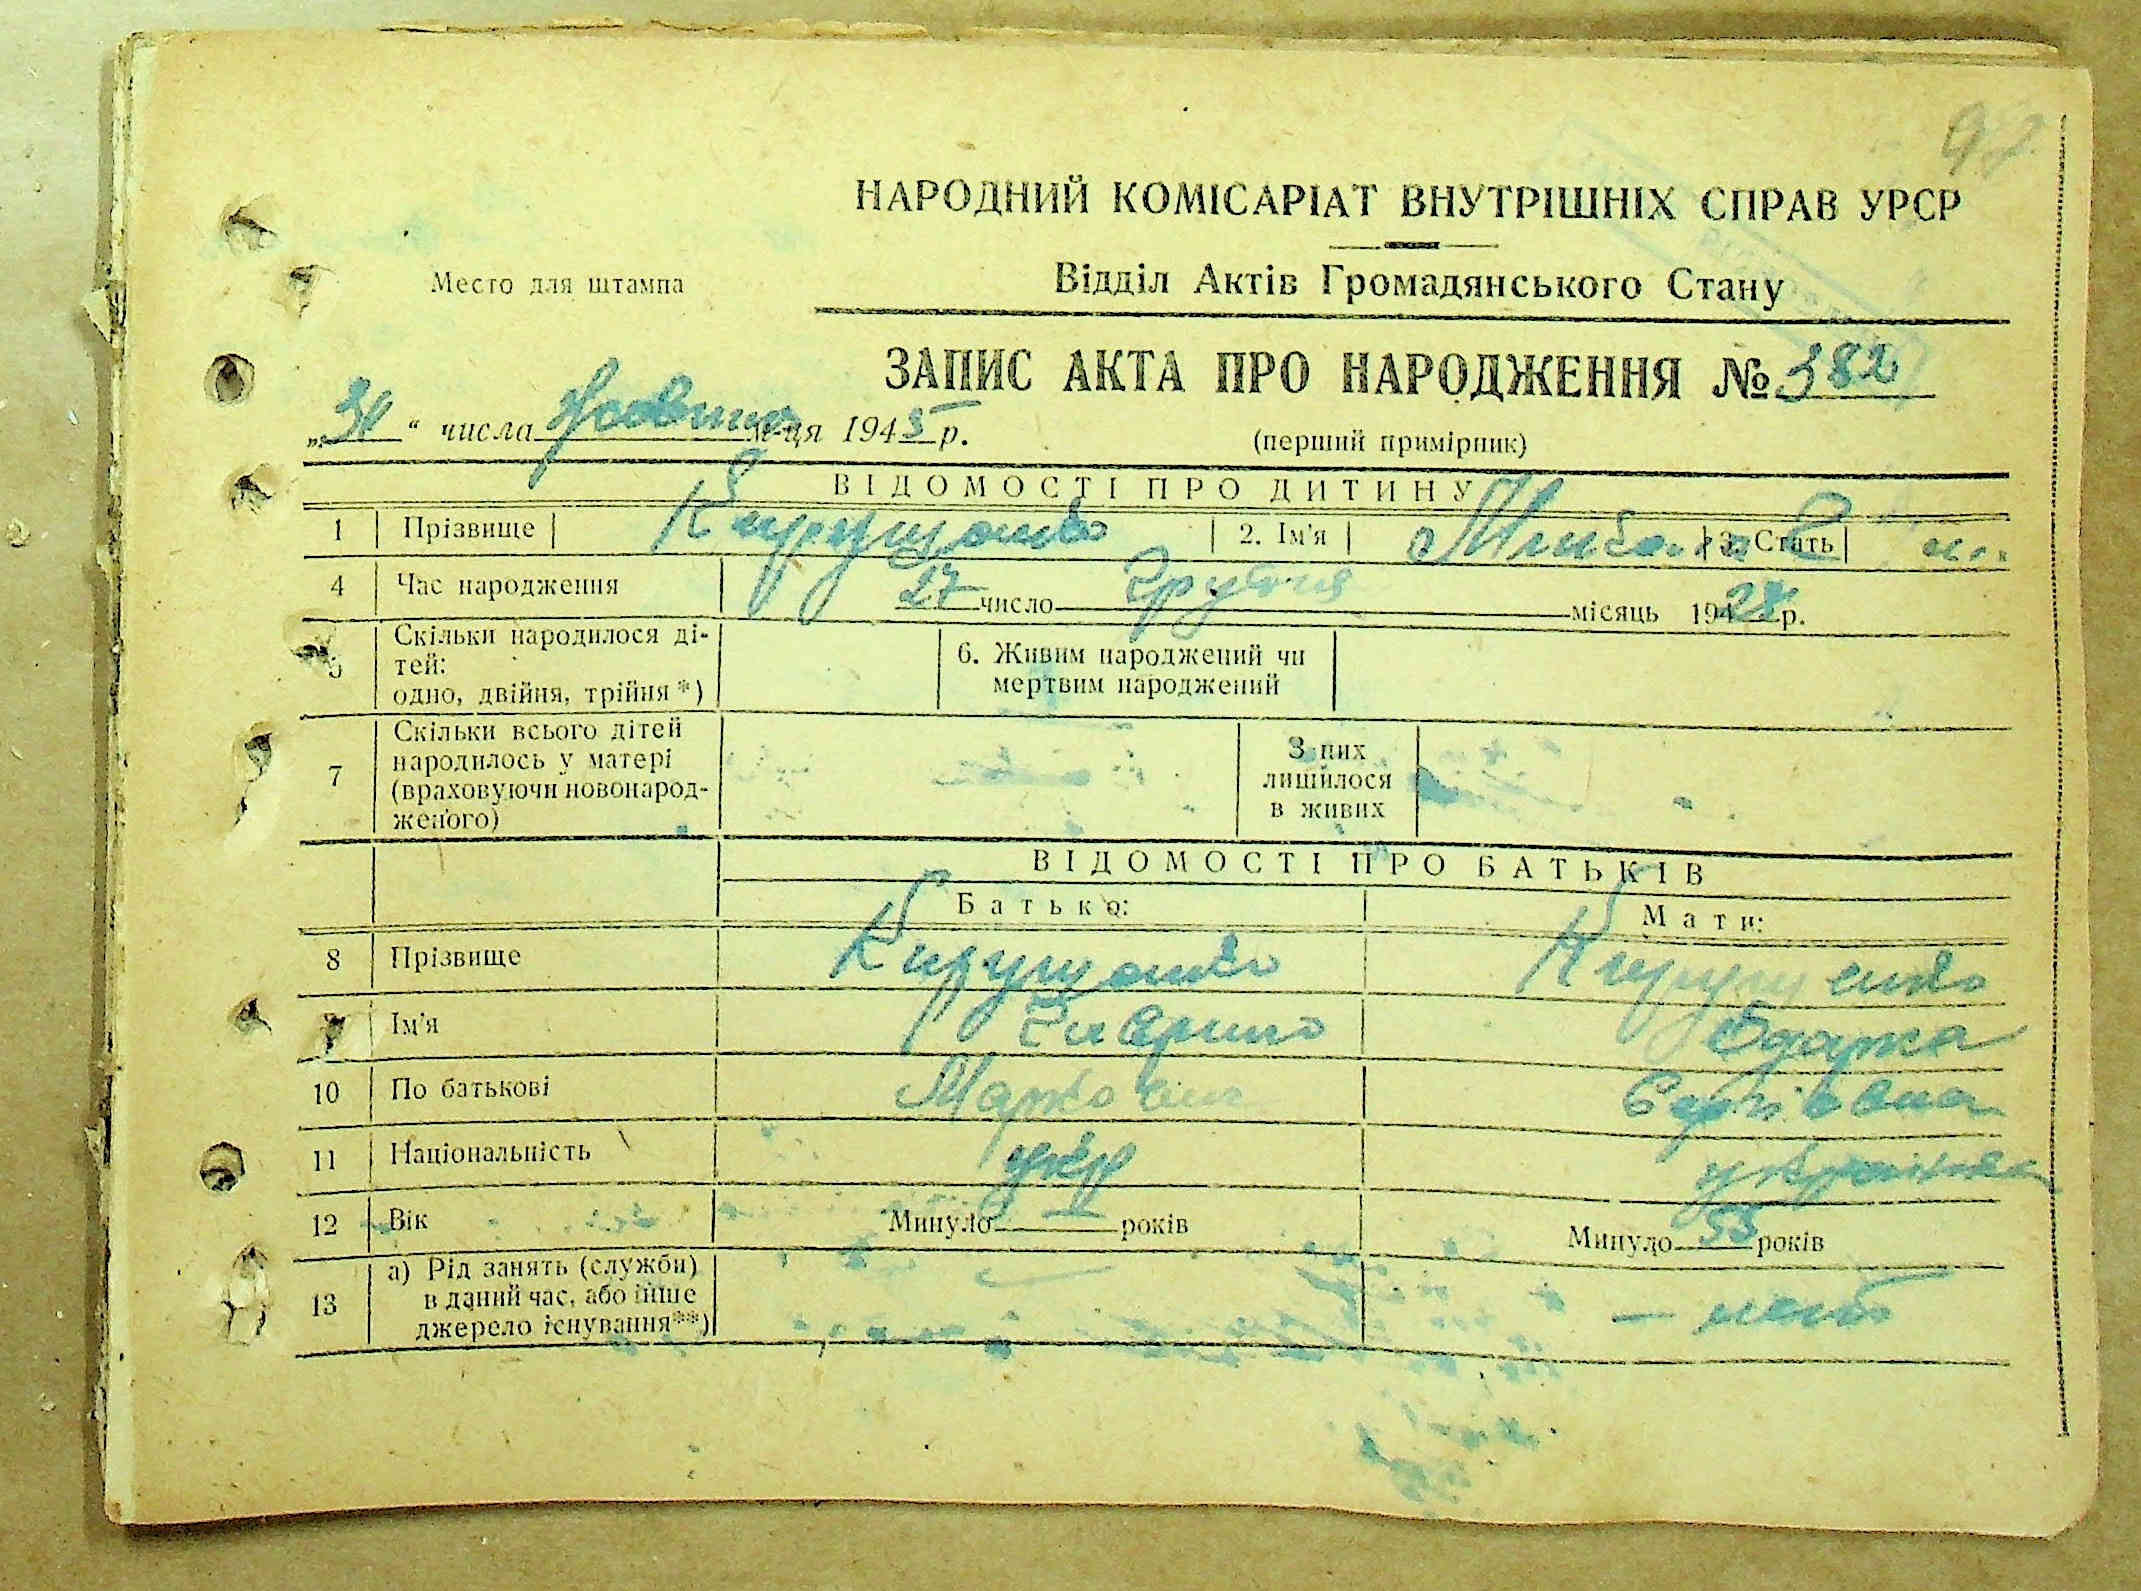 НАРОДНИЙ КОМІСАРІАТ ВНУТРІШНІХ СПРАВ УРСР
Место для штампа
Відділ Актів Громадянського Стану
ЗАПИС АКТА ПРО НАРОДЖЕННЯ № 382
" числа м-ця 1945 р.
(перший примірник)
ВІДОМОСТІ ПРО ДИТИНУ
1 Прізвище 2. Ім'я 3. Стать
4 Час народження 27 число Грудня місяць 194 р.
5 Скільки народилося ді-
тей:
одно, двійня, трійня *)
6. Живим народжений чи
мертвим народжений
7 Скільки всього дітей
народилось у матері
(враховуючи новонарод-
женого)
З них
лишилося
в живих
ВІДОМОСТІ ПРО БАТЬКІВ
Батько: Мати:
8 Прізвище
9 Ім'я Одарка
10 По батькові Маркович Сергіївна
11 Національність укр українка
12 Вік Минуло — років Минуло 53 років
13 а) Рід занять (служби)
в даний час, або інше
джерело існування**)